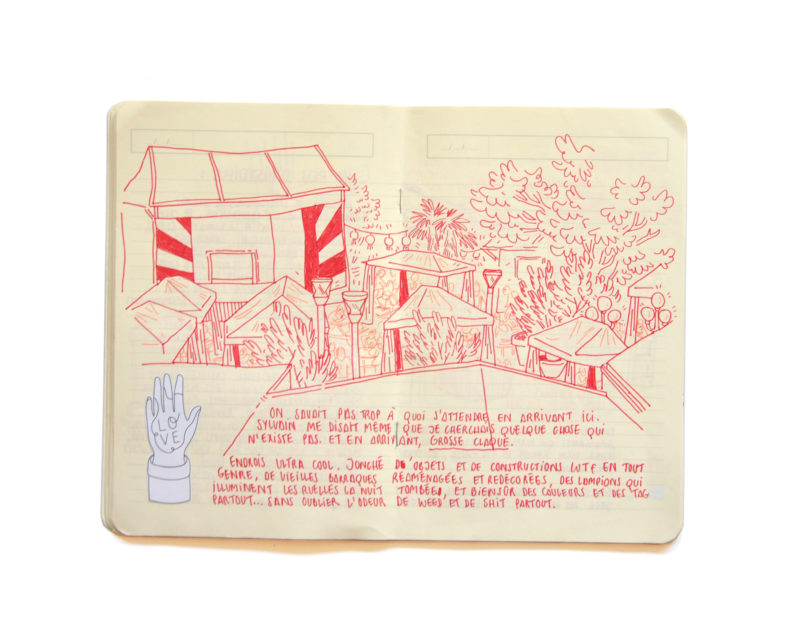 ON SAVAIT PAS TROP À QUOI S'ATTENDRE EN ARRIVANT ICI.
SYLVAIN ME DISAIT MÊME QUE JE CHERCHAIS QUELQUE CHOSE QUI
N'EXISTE PAS. ET EN ARRIVANT, GROSSE CLAQUE.
ENDROIS ULTRA COOL. JONCHÉ D'OBJETS ET DE CONSTRUCTIONS WTF EN TOUT
GENRE, DE VIEILLES BARRAQUES RÉAMÉNAGÉES ET REDÉCORÉES, DES LAMPIONS QUI
ILLUMINENT LES RUELLES LA NUIT TOMBÉE, ET BIENSÛR DES COULEURS ET DES TAG
PARTOUT... SANS OUBLIER L'ODEUR DE WEED ET DE SHIT PARTOUT.
LO
VE